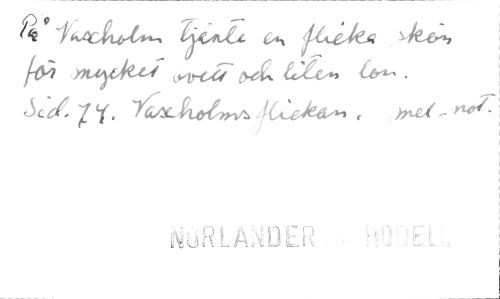 På Vaxholm tjänte en flicka skön
för mycket ovett och liten lön.
Sid. 74. Vaxholmsflickan. mel-not.
NORLANDER - HODELL